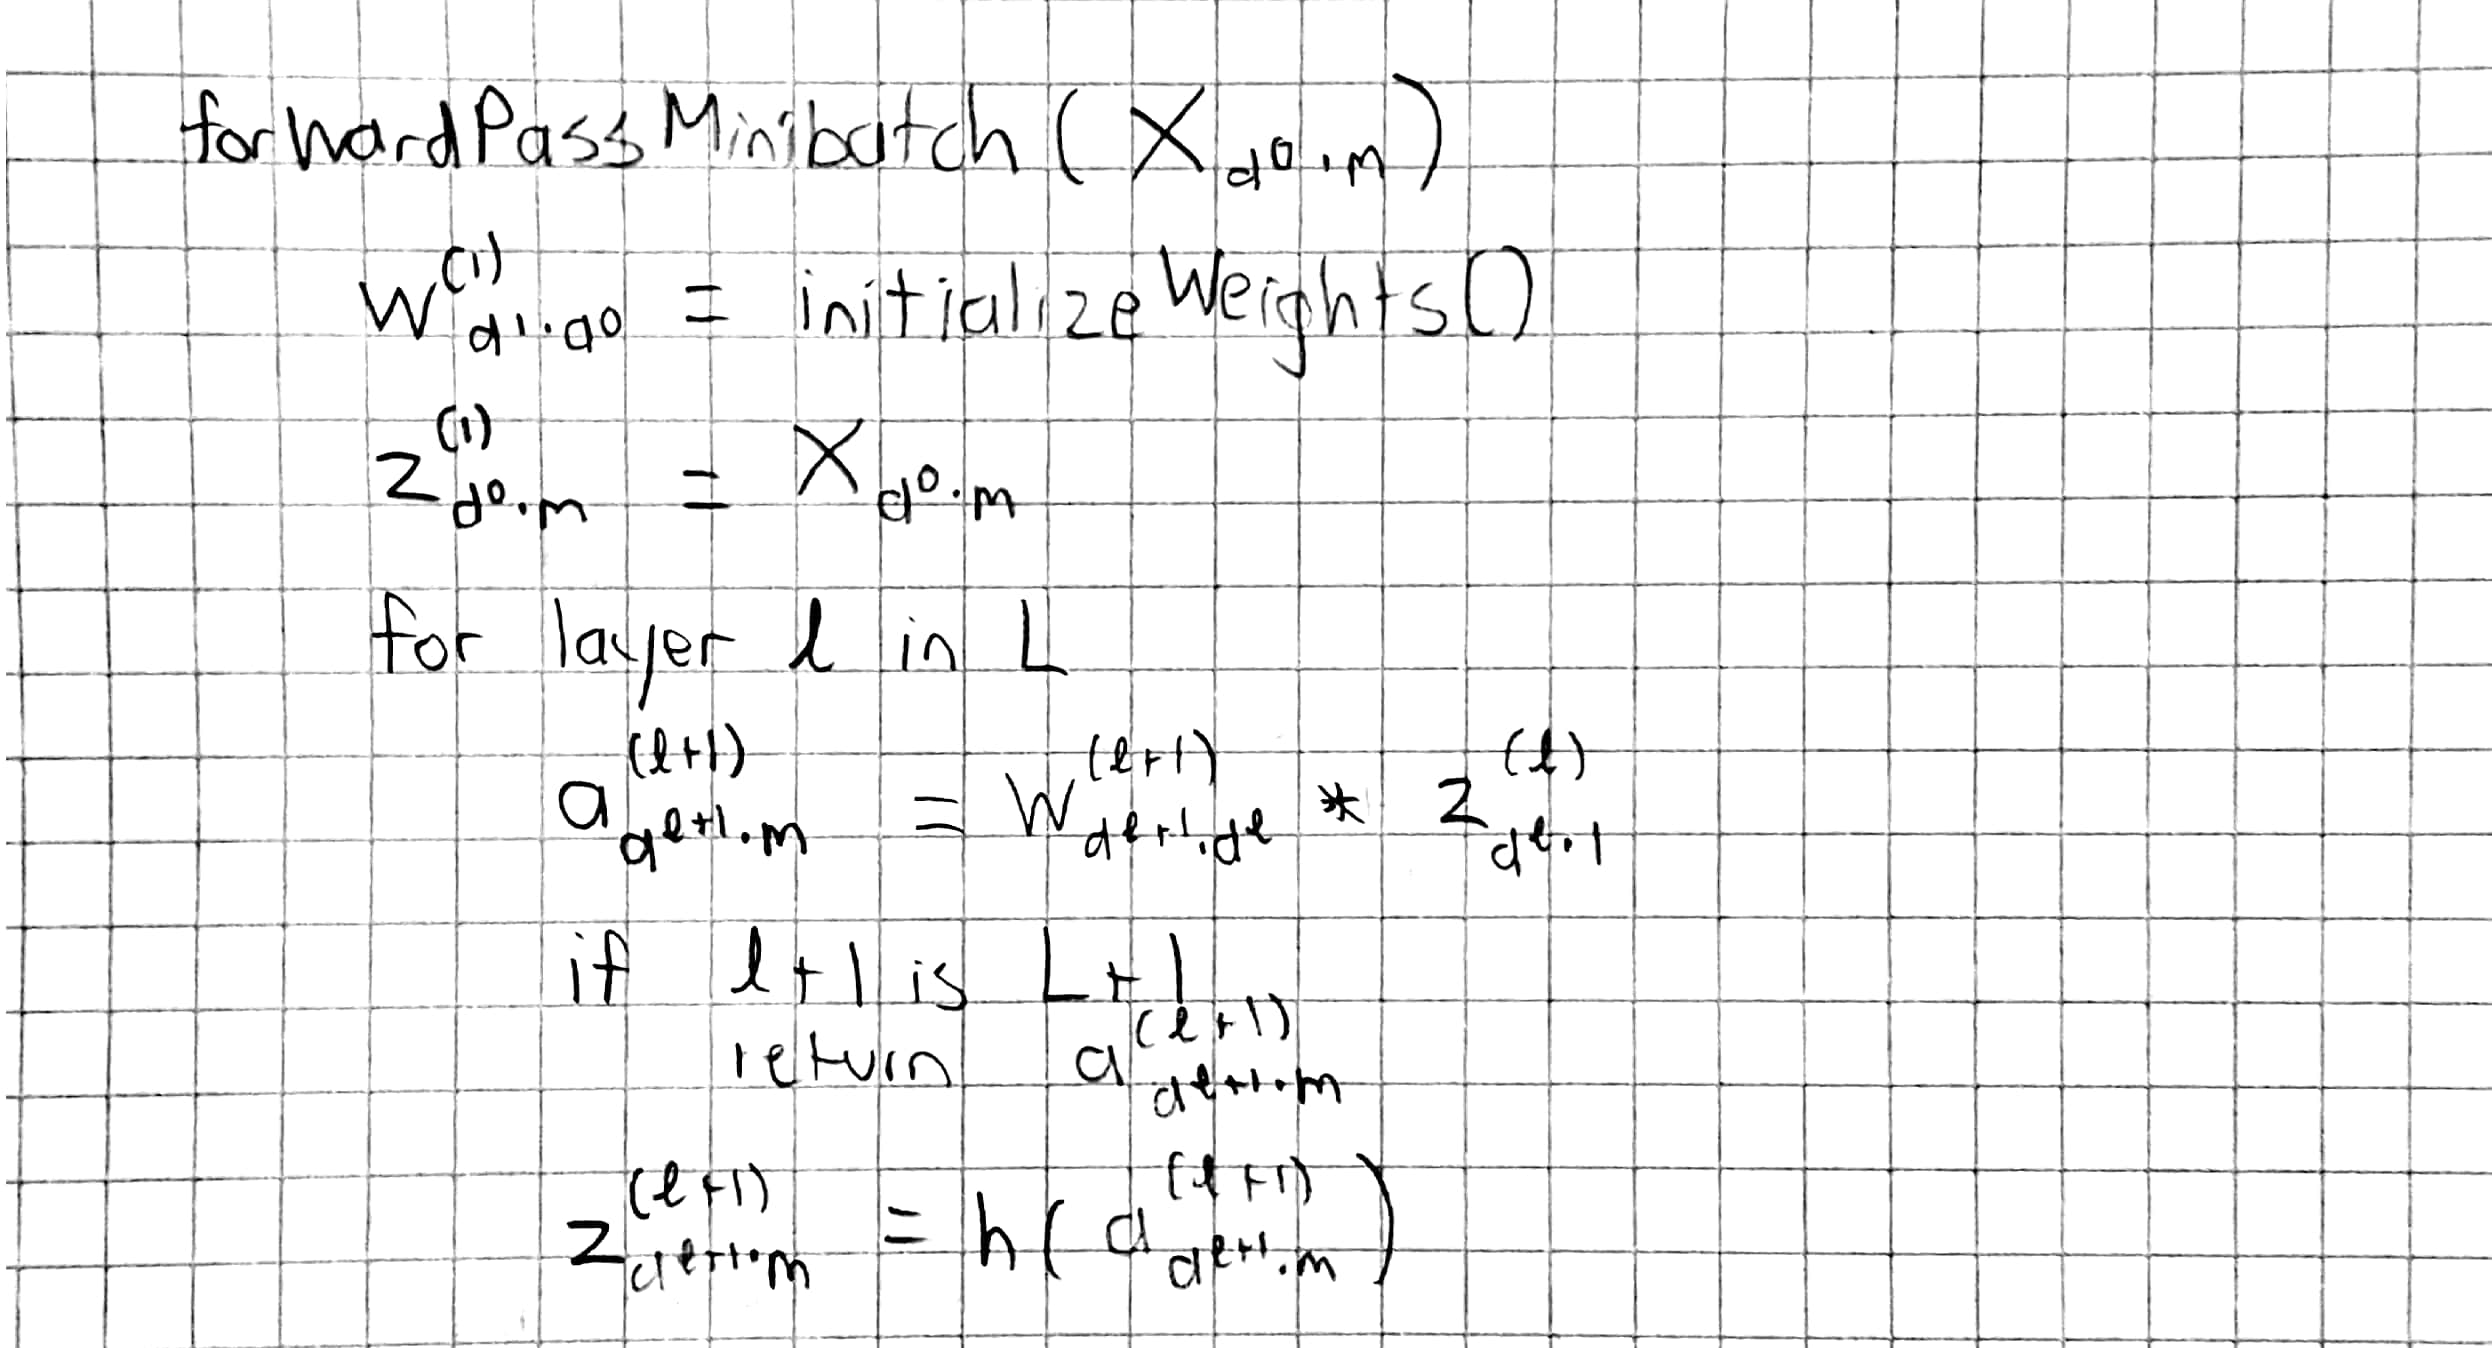 forwardPassMinibatch(X_{d^0·m})
W^{(1)}_{d^1·d^0} = initializeWeights()
z^{(1)}_{d^0·m} = X_{d^0·m}
for layer ℓ in L
a^{(ℓ+1)}_{d^{ℓ+1}·m} = W^{(ℓ+1)}_{d^{ℓ+1}·d^ℓ} * z^{(ℓ)}_{d^ℓ·1}
if ℓ+1 is L+1
return a^{(ℓ+1)}_{d^{ℓ+1}·m}
z^{(ℓ+1)}_{d^{ℓ+1}·m} = h(a^{(ℓ+1)}_{d^{ℓ+1}·m})